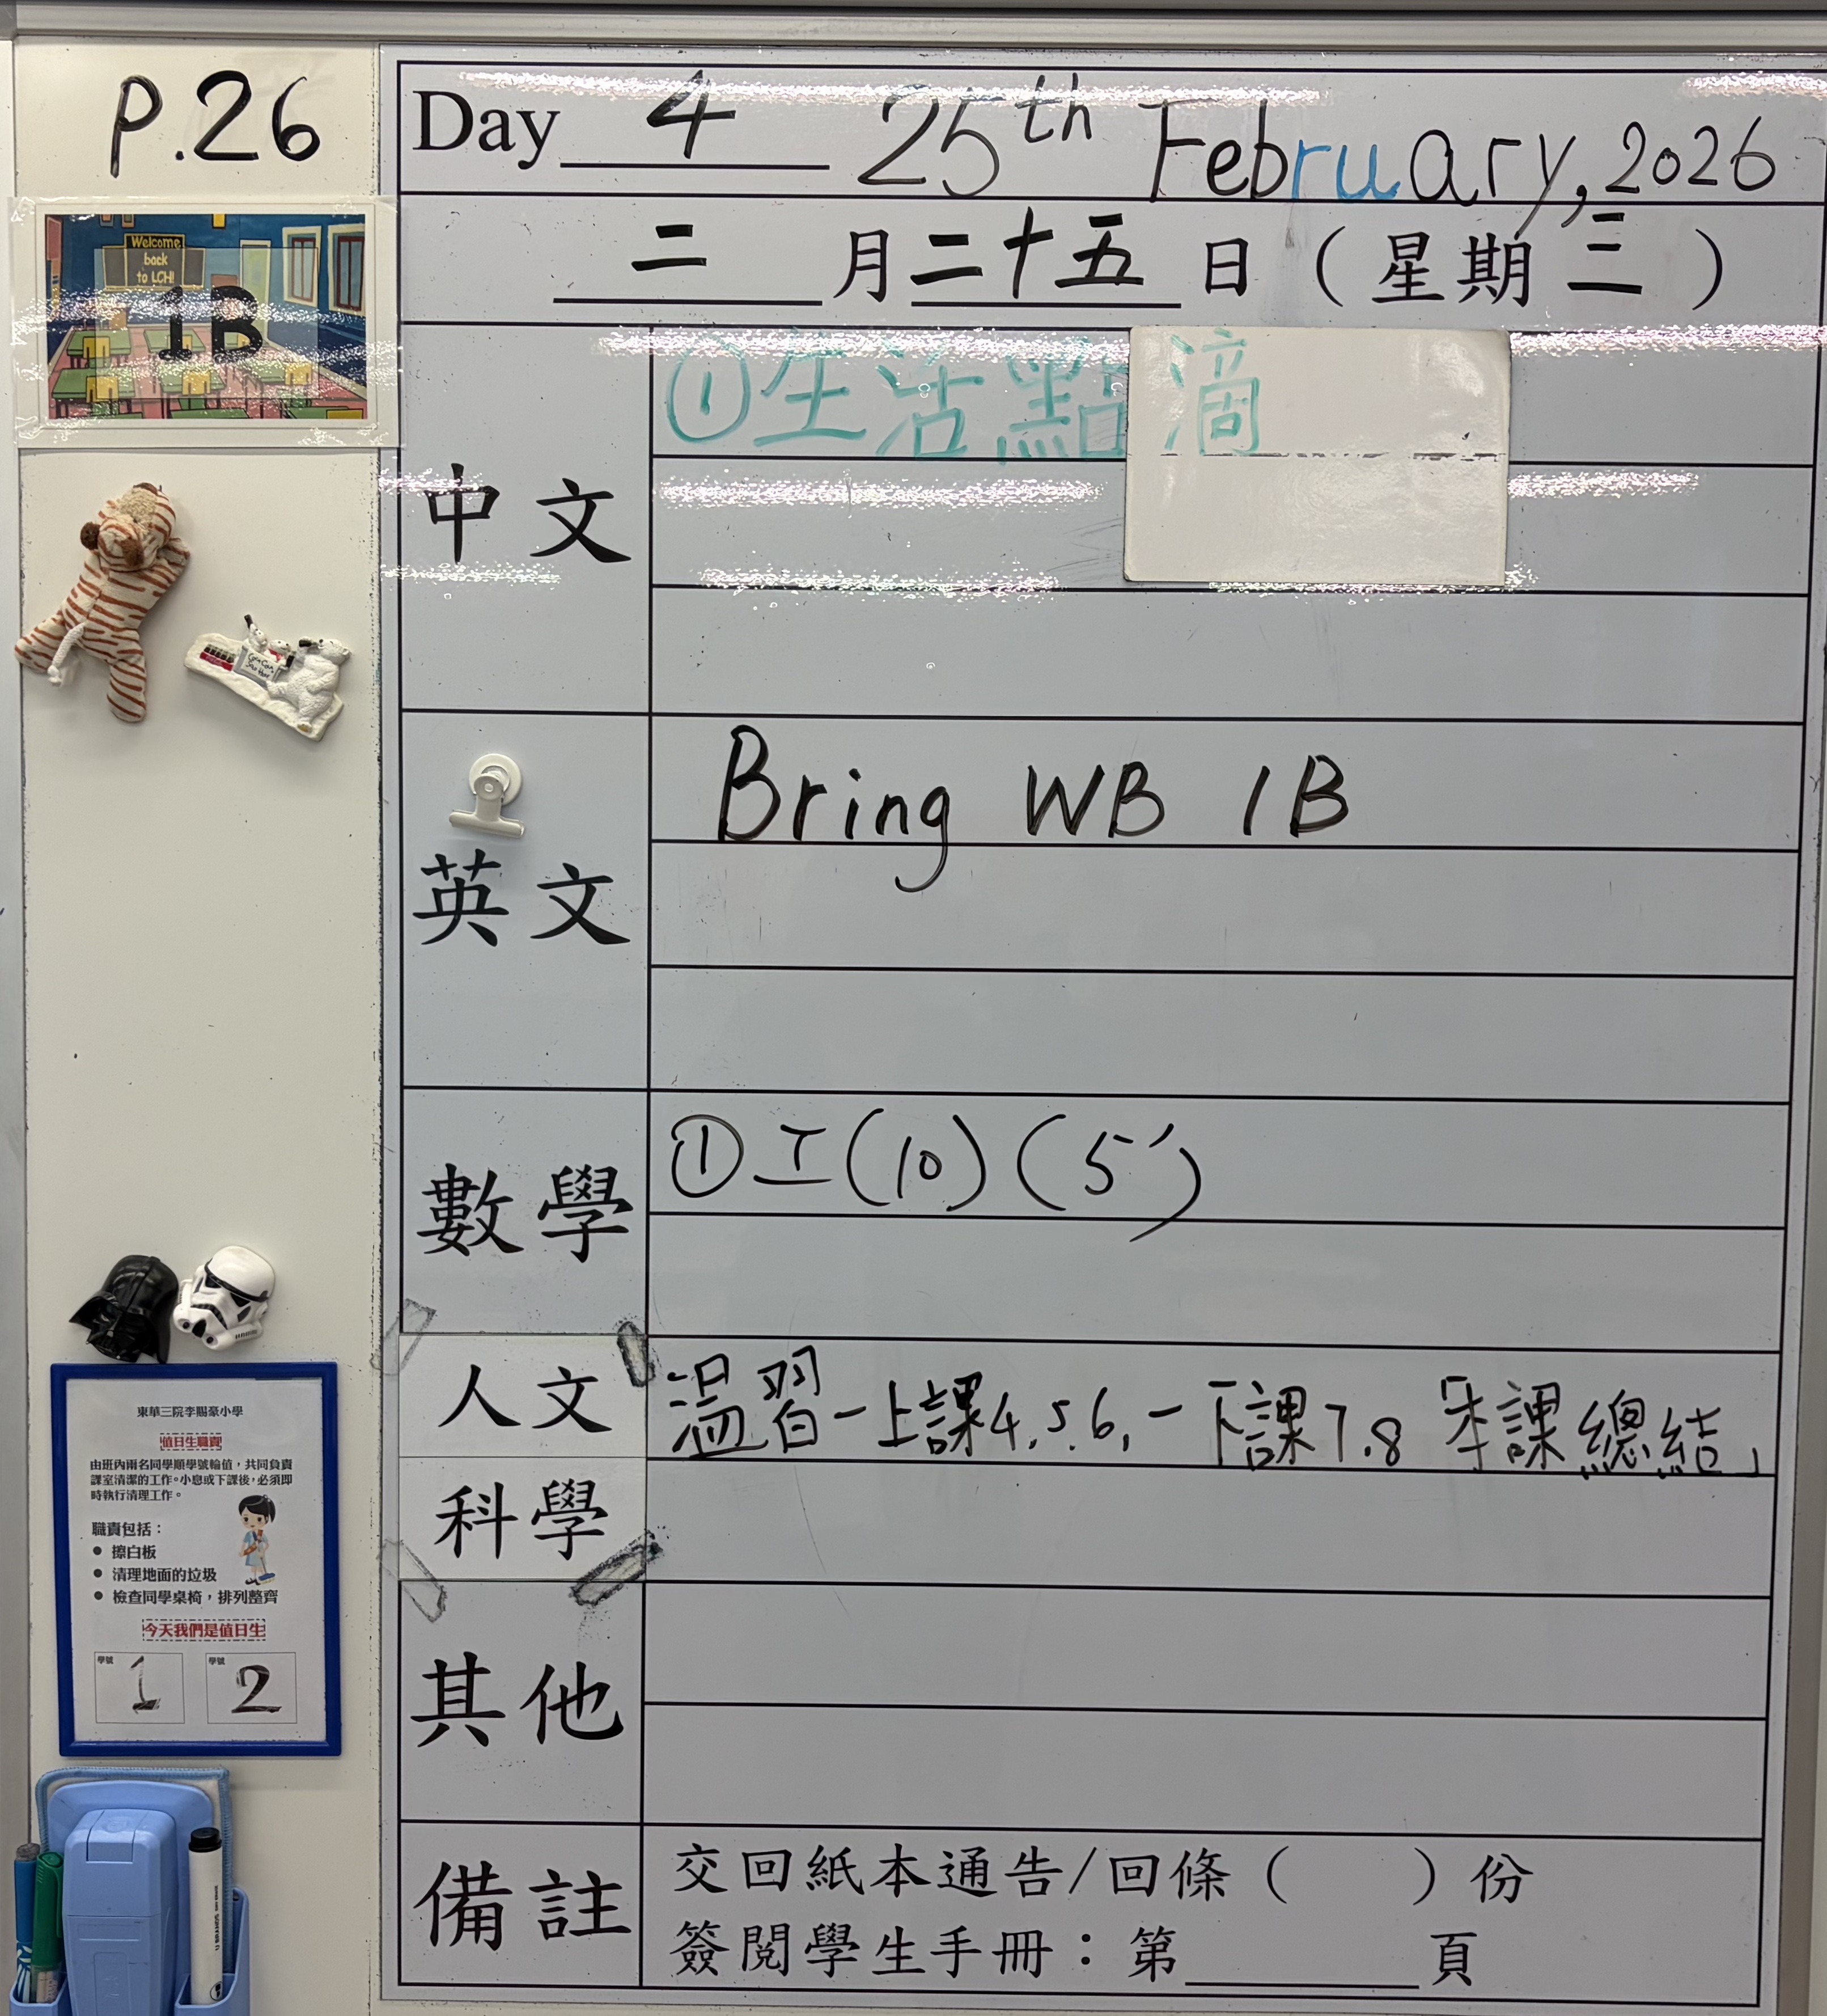 P.26
Day 4 25th February, 2026
二 月 二十五 日 (星期 三 )
Welcome
back
to LCH!
1B
中文
①生活點滴
英文
Bring WB 1B
數學
①工(10)(5')
人文
溫習一上課4,5,6,一下課7,8「本課總結」
科學
其他
備註
交回紙本通告/回條( )份
簽閱學生手冊:第 頁
東華三院李賜豪小學
值日生職責
由班內兩名同學順學號輪值,共同負責
課室清潔的工作。小息或下課後,必須即
時執行清理工作。
職責包括:
● 擦白板
● 清理地面的垃圾
● 檢查同學桌椅,排列整齊
今天我們是值日生
學號 1 學號 2